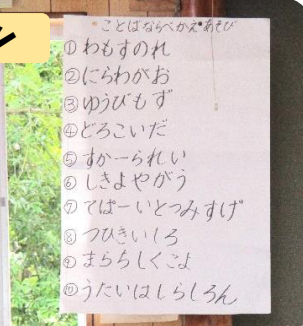 ことばならべかえあそび
①わもすのれ
②にらわがお
③ゆうびもず
④どろこいだ
⑤すかーられい
⑥しきよやがう
⑦てぱーいとつみすげ
⑧つひきいしろ
⑨まらちしくごよ
⑩うたいはしらしろん